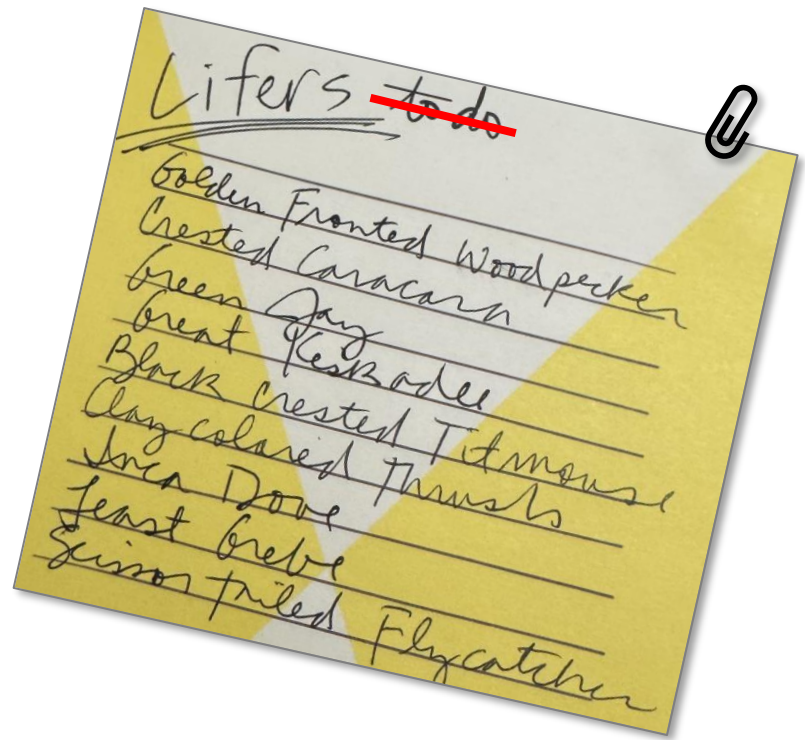 Lifers to do
Golden Fronted Woodpecker
Crested Caracara
Green Jay
Great Keskadee
Black Crested Titmouse
Clay colored Thrush
Inca Dove
Least Grebe
Scissor tailed Flycatcher